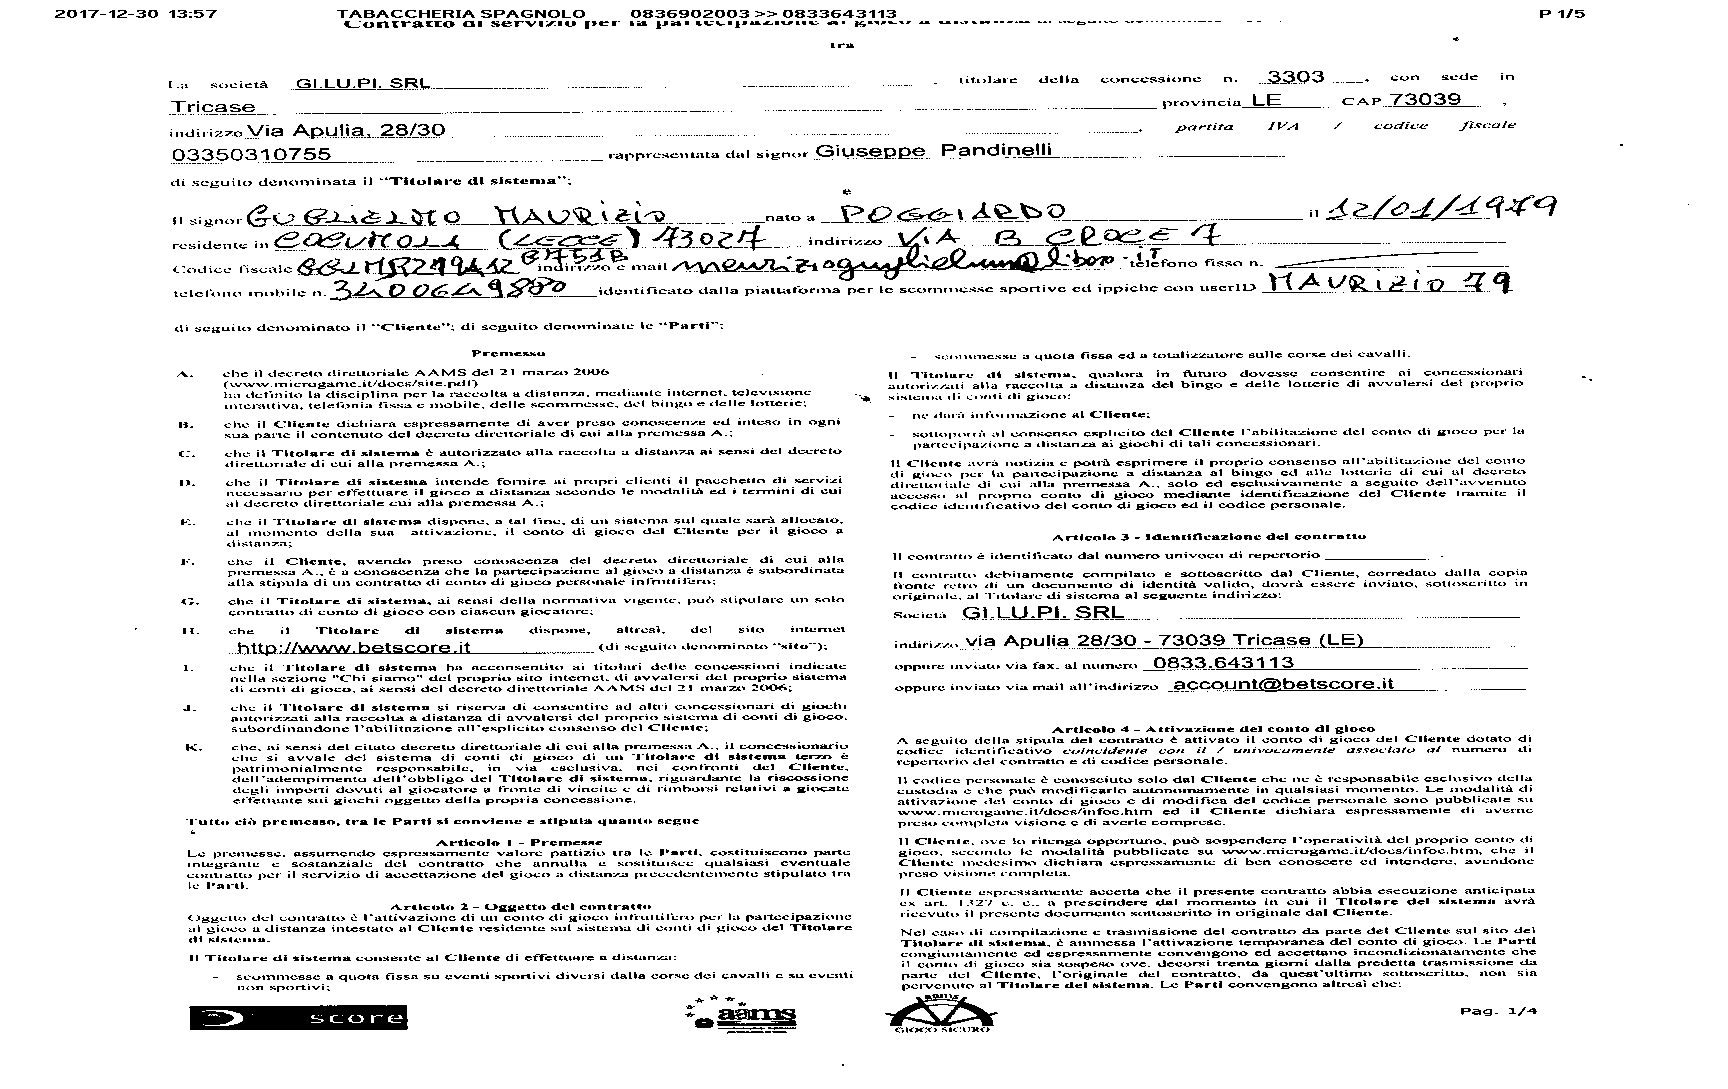 2017-12-30 13:57 TABACCHERIA SPAGNOLO 0836902003 >> 0833643113 P 1/5
Contratto di servizio per la partecipazione al gioco a distanza
tra
La società GI.LU.PI. SRL titolare della concessione n. 3303, con sede in
Tricase provincia LE CAP 73039,
indirizzo Via Apulia, 28/30, partita IVA / codice fiscale
03350310755 rappresentata dal signor Giuseppe Pandinelli
di seguito denominata il "Titolare di sistema";
Il signor GUGLIELMO MAURIZIO nato a POGGIARDO il 12/01/1979
residente in (LECCE) 73027 indirizzo VIA B CROCE 7
Codice fiscale indirizzo e mail telefono fisso n.
telefono mobile n. 3400649880 identificato dalla piattaforma per le scommesse sportive ed ippiche con userID MAURIZIO 79
di seguito denominato il "Cliente"; di seguito denominate le "Parti";
Premesso
A. che il decreto direttoriale AAMS del 21 marzo 2006
(www.microgame.it/docs/site.pdf)
ha definito la disciplina per la raccolta a distanza, mediante internet, televisione
interattiva, telefonia fissa e mobile, delle scommesse, del bingo e delle lotterie;
B. che il Cliente dichiara espressamente di aver preso conoscenze ed inteso in ogni
sua parte il contenuto del decreto direttoriale di cui alla premessa A.;
C. che il Titolare di sistema è autorizzato alla raccolta a distanza ai sensi del decreto
direttoriale di cui alla premessa A.;
D. che il Titolare di sistema intende fornire ai propri clienti il pacchetto di servizi
necessario per effettuare il gioco a distanza secondo le modalità ed i termini di cui
al decreto direttoriale cui alla premessa A.;
E. che il Titolare di sistema dispone, a tal fine, di un sistema sul quale sarà allocato,
al momento della sua attivazione, il conto di gioco del Cliente per il gioco a
distanza;
F. che il Cliente, avendo preso conoscenza del decreto direttoriale di cui alla
premessa A., è a conoscenza che la partecipazione al gioco a distanza è subordinata
alla stipula di un contratto di conto di gioco personale infruttifero;
G. che il Titolare di sistema, ai sensi della normativa vigente, può stipulare un solo
contratto di conto di gioco con ciascun giocatore;
H. che il Titolare di sistema dispone, altresì, del sito internet
http://www.betscore.it (di seguito denominato "sito");
I. che il Titolare di sistema ha acconsentito ai titolari delle concessioni indicate
nella sezione "Chi siamo" del proprio sito internet, di avvalersi del proprio sistema
di conti di gioco, ai sensi del decreto direttoriale AAMS del 21 marzo 2006;
J. che il Titolare di sistema si riserva di consentire ad altri concessionari di giochi
autorizzati alla raccolta a distanza di avvalersi del proprio sistema di conti di gioco,
subordinandone l'abilitazione all'esplicito consenso del Cliente;
K. che, ai sensi del citato decreto direttoriale di cui alla premessa A., il concessionario
che si avvale del sistema di conti di gioco di un Titolare di sistema terzo è
patrimonialmente responsabile, in via esclusiva, nei confronti del Cliente,
dell'adempimento dell'obbligo del Titolare di sistema, riguardante la riscossione
degli importi dovuti al giocatore a fronte di vincite e di rimborsi relativi a giocate
effettuate sui giochi oggetto della propria concessione.
Tutto ciò premesso, tra le Parti si conviene e stipula quanto segue
Articolo 1 - Premesse
Le premesse, assumendo espressamente valore pattizio tra le Parti, costituiscono parte
integrante e sostanziale del contratto che annulla e sostituisce qualsiasi eventuale
contratto per il servizio di accettazione del gioco a distanza precedentemente stipulato tra
le Parti.
Articolo 2 - Oggetto del contratto
Oggetto del contratto è l'attivazione di un conto di gioco infruttifero per la partecipazione
al gioco a distanza intestato al Cliente residente sul sistema di conti di gioco del Titolare
di sistema.
Il Titolare di sistema consente al Cliente di effettuare a distanza:
- scommesse a quota fissa su eventi sportivi diversi dalla corse dei cavalli e su eventi
non sportivi;
- scommesse a quota fissa ed a totalizzatore sulle corse dei cavalli.
Il Titolare di sistema, qualora in futuro dovesse consentire ai concessionari
autorizzati alla raccolta a distanza del bingo e delle lotterie di avvalersi del proprio
sistema di conti di gioco:
- ne darà informazione al Cliente;
- sottoporrà al consenso esplicito del Cliente l'abilitazione del conto di gioco per la
partecipazione a distanza ai giochi di tali concessionari.
Il Cliente avrà notizia e potrà esprimere il proprio consenso all'abilitazione del conto
di gioco per la partecipazione a distanza al bingo ed alle lotterie di cui al decreto
direttoriale di cui alla premessa A., solo ed esclusivamente a seguito dell'avvenuto
accesso al proprio conto di gioco mediante identificazione del Cliente tramite il
codice identificativo del conto di gioco ed il codice personale.
Articolo 3 - Identificazione del contratto
Il contratto è identificato dal numero univoco di repertorio
Il contratto debitamente compilato e sottoscritto dal Cliente, corredato dalla copia
fronte retro di un documento di identità valido, dovrà essere inviato, sottoscritto in
originale, al Titolare di sistema al seguente indirizzo:
Società GI.LU.PI. SRL
indirizzo via Apulia 28/30 - 73039 Tricase (LE)
oppure inviato via fax. al numero 0833.643113
oppure inviato via mail all'indirizzo account@betscore.it
Articolo 4 - Attivazione del conto di gioco
A seguito della stipula del contratto è attivato il conto di gioco del Cliente dotato di
codice identificativo coincidente con il / univocamente associato al numero di
repertorio del contratto e di codice personale.
Il codice personale è conosciuto solo dal Cliente che ne è responsabile esclusivo della
custodia e che può modificarlo autonomamente in qualsiasi momento. Le modalità di
attivazione del conto di gioco e di modifica del codice personale sono pubblicate su
www.microgame.it/docs/infoc.htm ed il Cliente dichiara espressamente di averne
preso completa visione e di averle comprese.
Il Cliente, ove lo ritenga opportuno, può sospendere l'operatività del proprio conto di
gioco, secondo le modalità pubblicate su www.microgame.it/docs/infoc.htm, che il
Cliente medesimo dichiara espressamente di ben conoscere ed intendere, avendone
preso visione completa.
Il Cliente espressamente accetta che il presente contratto abbia esecuzione anticipata
ex art. 1327 c. c., a prescindere dal momento in cui il Titolare del sistema avrà
ricevuto il presente documento sottoscritto in originale dal Cliente.
Nel caso di compilazione e trasmissione del contratto da parte del Cliente sul sito del
Titolare di sistema, è ammessa l'attivazione temporanea del conto di gioco. Le Parti
congiuntamente ed espressamente convengono ed accettano incondizionatamente che
il conto di gioco sia sospeso ove, decorsi trenta giorni dalla predetta trasmissione da
parte del Cliente, l'originale del contratto, da quest'ultimo sottoscritto, non sia
pervenuto al Titolare del sistema. Le Parti convengono altresì che:
score aams aams GIOCO SICURO Pag. 1/4